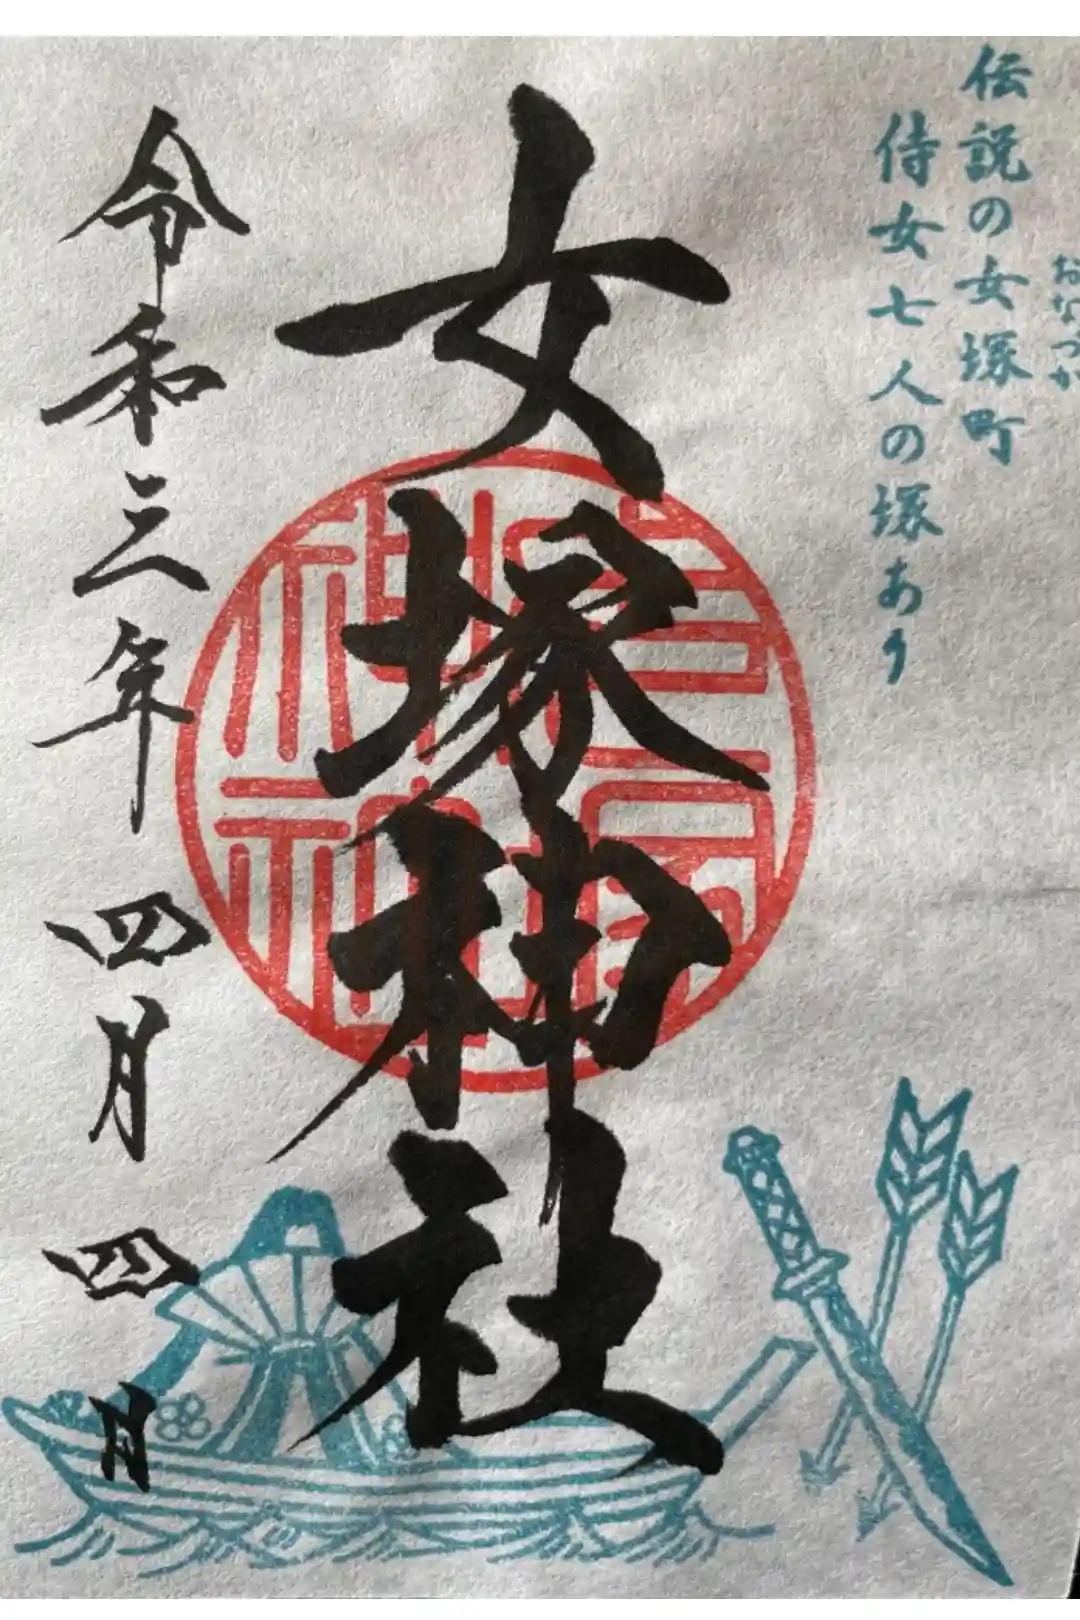 おなづか
伝説の女塚町
侍女七人の塚あり
女塚神社
令和三年四月四日